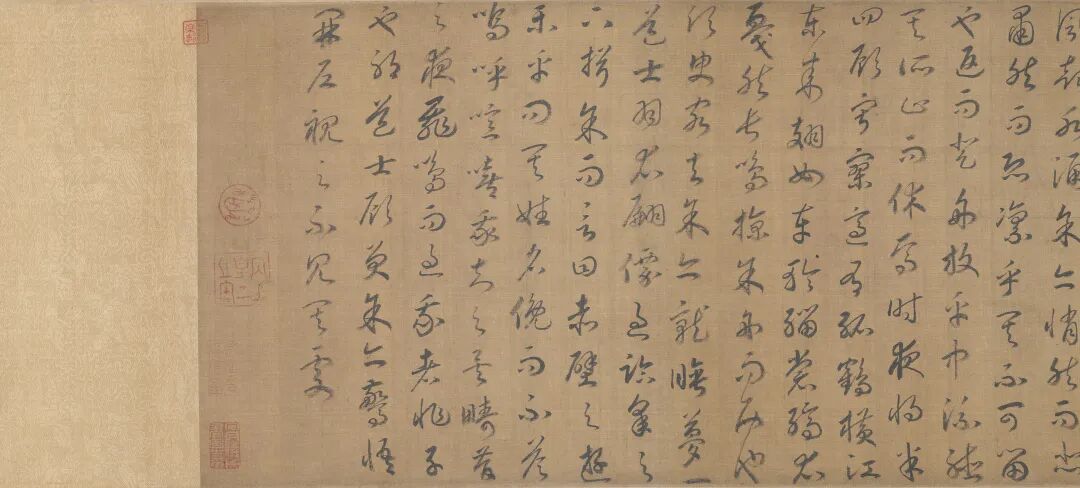 風起水涌余亦悄然而悲
肅然而恐凜乎其不可留
也返而登舟放乎中流聽
其所止而休焉時夜將半
四顧寂寥適有孤鶴橫江
東來翅如車輪緇裳縞衣
戛然長鳴掠余舟而西也
須臾客去余亦就睡夢一
道士羽衣翩僊過臨皋之
下揖余而言曰赤壁之遊
樂乎問其姓名俛而不答
嗚呼噫嘻我知之矣疇昔
之夜飛鳴而過我者非子
也耶道士顧笑余亦驚悟
開戶視之不見其處